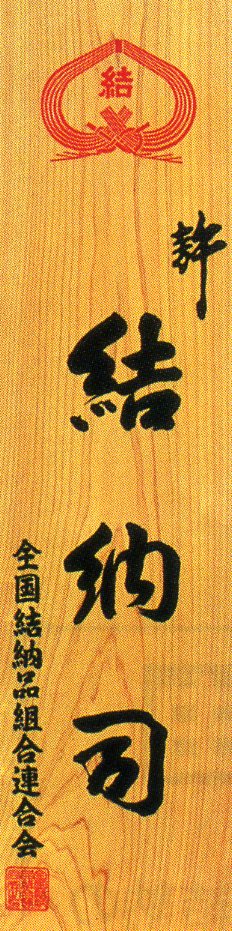 結
許
結納司
全国結納品組合連合会